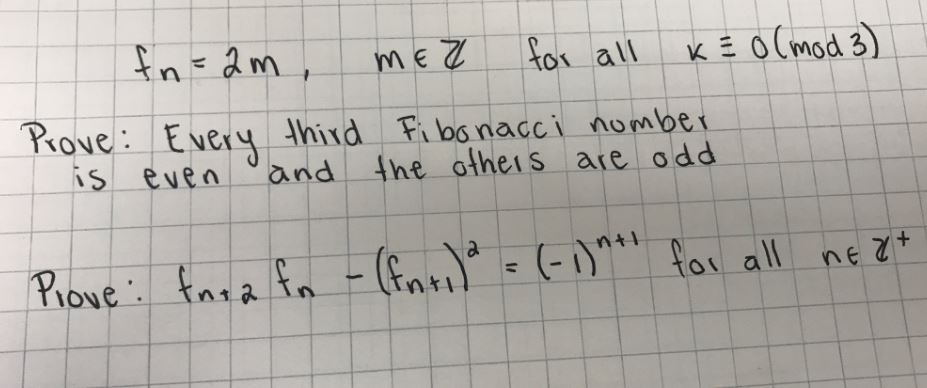 fn = 2m, m ∈ ℤ for all k ≡ 0 (mod 3)
Prove: Every third Fibonacci number
is even and the others are odd
Prove: fn+2 fn - (fn+1)² = (-1)ⁿ⁺¹ for all n ∈ ℤ⁺